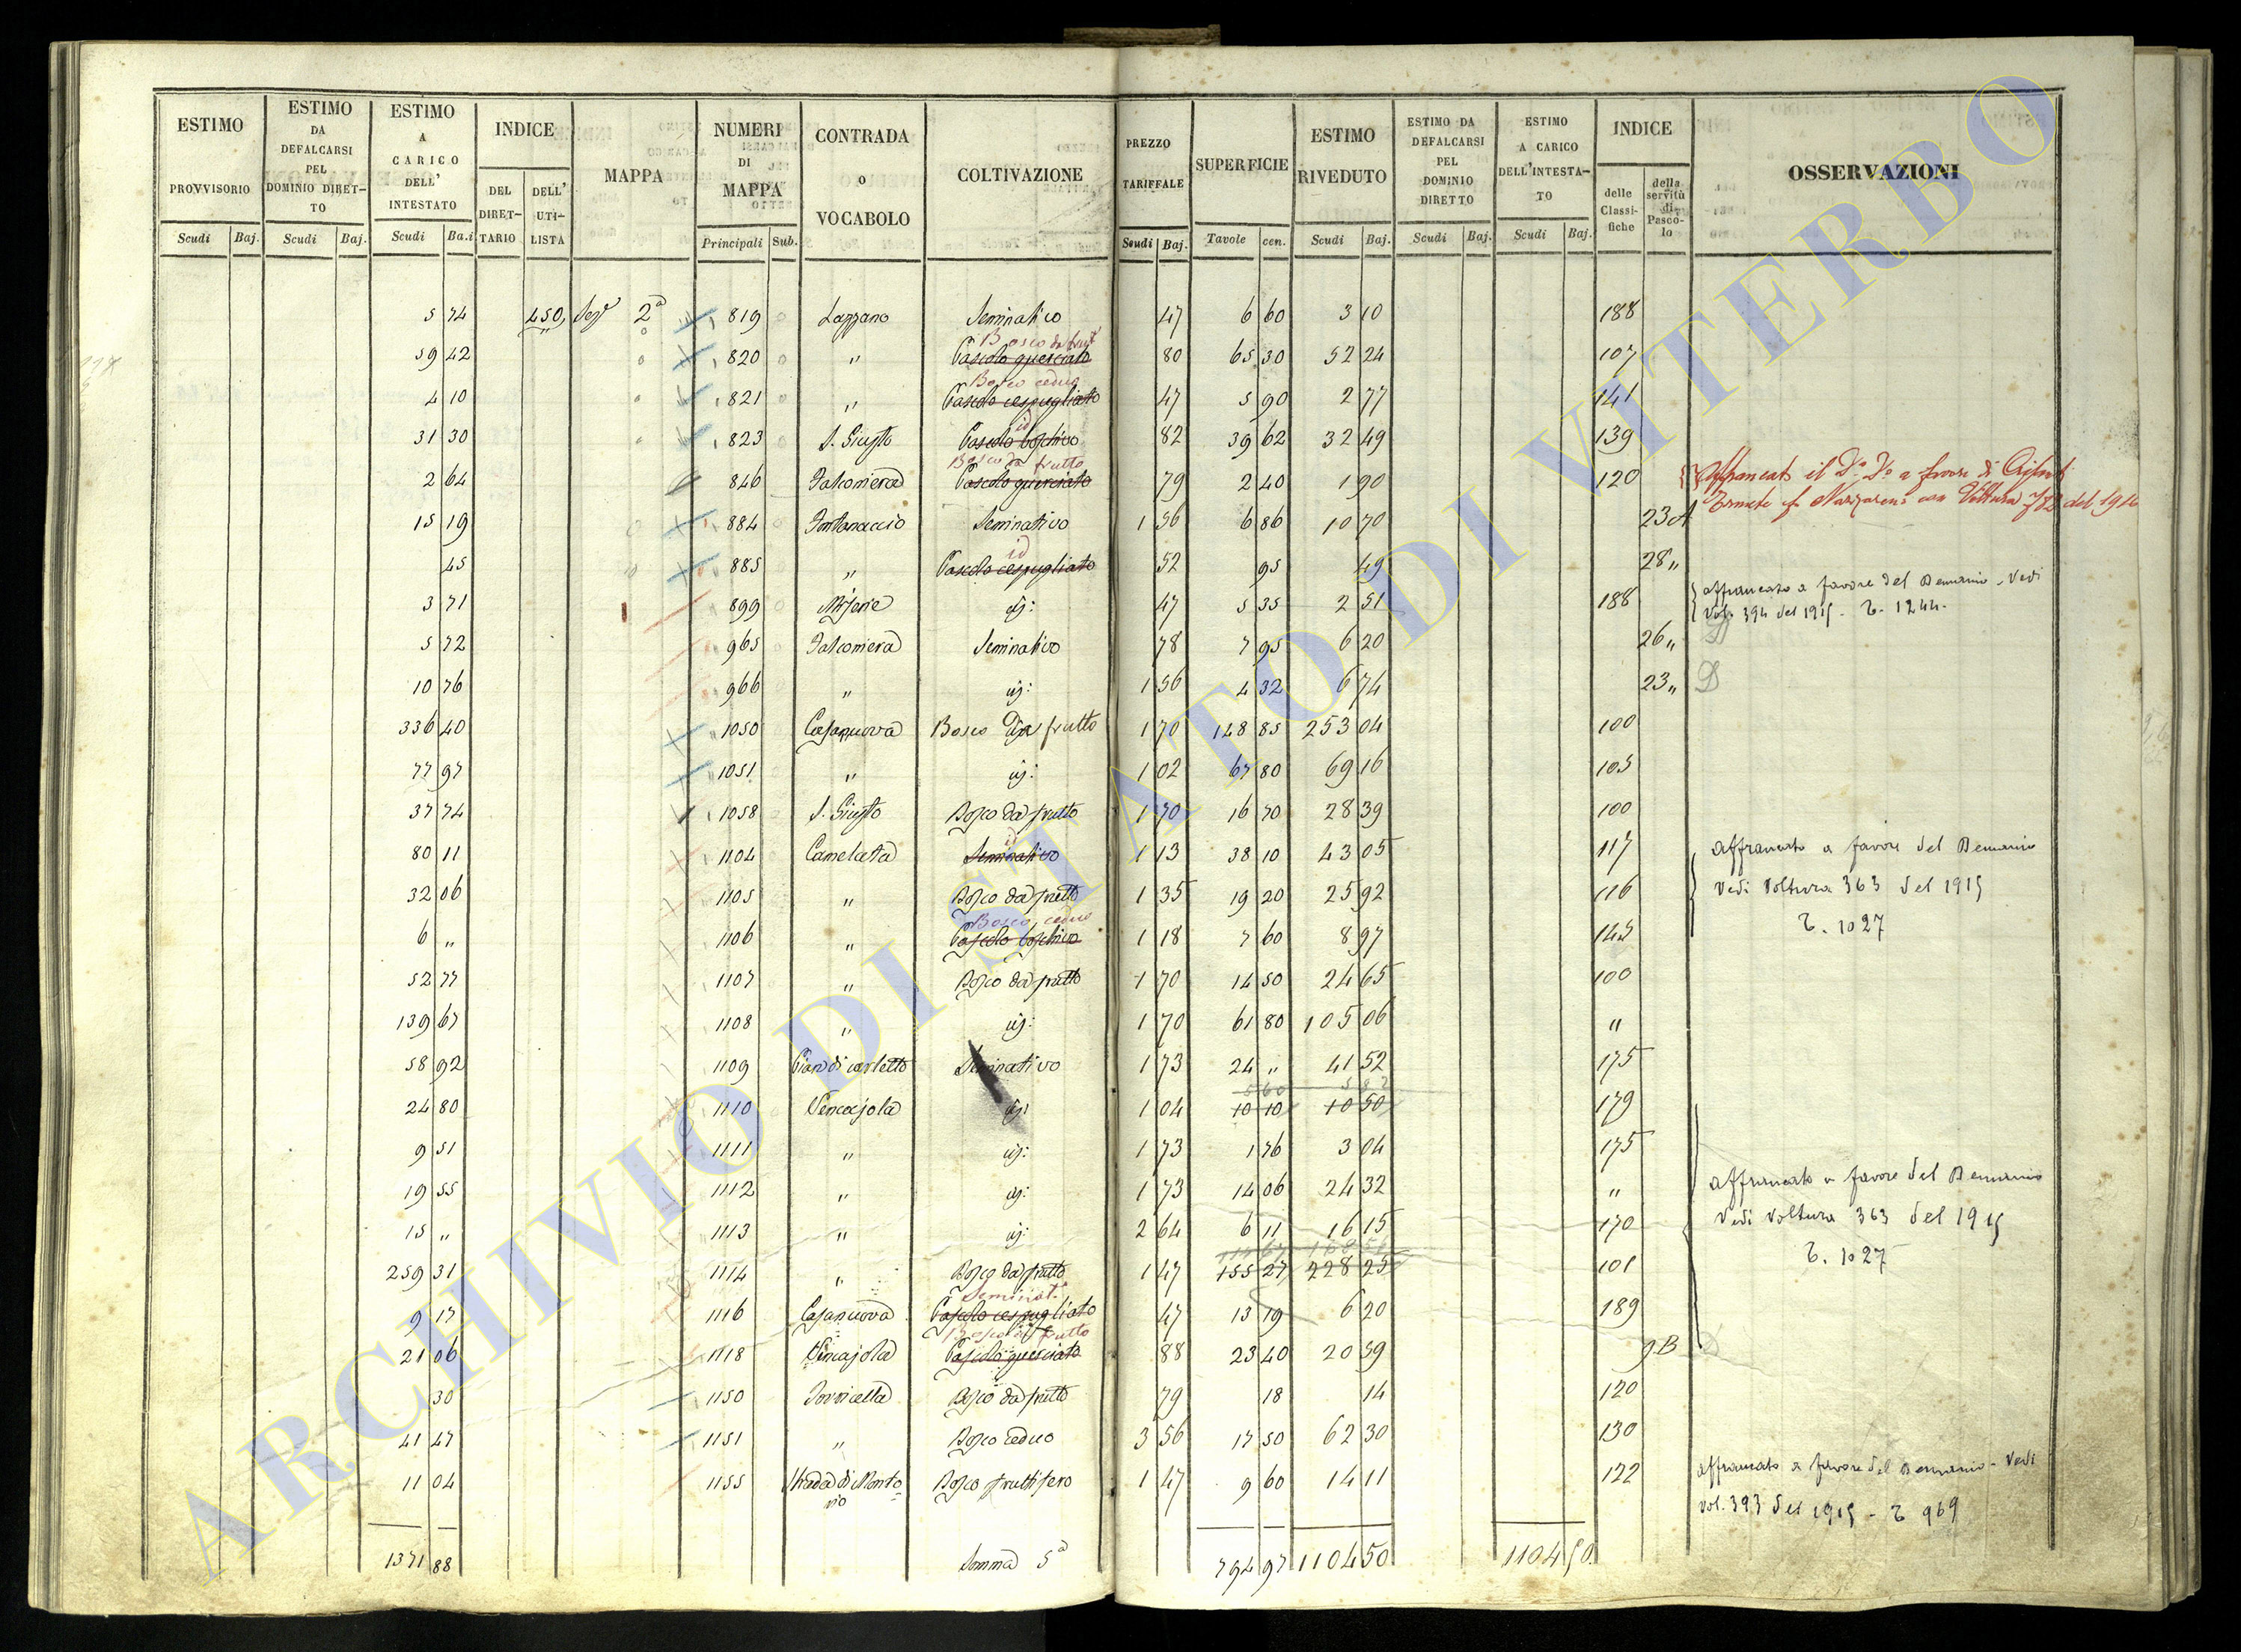 ESTIMO PROVVISORIO ESTIMO DA DEFALCARSI PEL DOMINIO DIRETTO ESTIMO A CARICO DELL' INTESTATO INDICE MAPPA NUMERI DI MAPPA CONTRADA O VOCABOLO COLTIVAZIONE PREZZO TARIFFALE SUPERFICIE ESTIMO RIVEDUTO ESTIMO DA DEFALCARSI PEL DOMINIO DIRETTO ESTIMO A CARICO DELL'INTESTATO INDICE OSSERVAZIONI
DEL DIRETTARIO DELL' UTILISTA delle Classifiche della servitù di Pascolo
Scudi Baj. Scudi Baj. Scudi Ba.i Principali Sub. Scudi Baj. Tavole cen. Scudi Baj. Scudi Baj. Scudi Baj.
5 74 450 2a 819 Lazzano Seminativo 47 6 60 3 10 188
Bosco da frut
59 42 820 " Pascolo querciato 80 65 30 52 24 107
Bosco ceduo
4 10 821 " Pascolo cespugliato 47 5 90 2 77 141
id
31 30 823 S. Giusto Pascolo boschivo 82 39 62 32 49 139
Bosco da frutto
2 64 846 Falconiera Pascolo querciato 79 2 40 1 90 120 Affrancato il a favore di
15 19 884 Fontanaccio Seminativo 1 56 6 86 10 70 23 A con Voltura del 1916
id
45 885 " Pascolo cespugliato 52 95 49 28 "
3 71 899 id: 47 5 35 2 51 188 affrancato a favore del Demanio - Vedi
Vol. 394 del 1915 - T. 1244.
5 72 965 Falconiera Seminativo 78 7 95 6 20 26 " D
10 76 966 " id: 1 56 4 32 6 74 23 " D
336 40 1050 Casanuova Bosco da frutto 1 70 148 85 253 04 100
77 97 1051 " id: 1 02 67 80 69 16 105
37 74 1058 S. Giusto Bosco da frutto 1 70 16 70 28 39 100
id
80 11 1104 Camelata Seminativo 1 13 38 10 43 05 117 affrancato a favore del Demanio
32 06 1105 " Bosco da frutto 1 35 19 20 25 92 116 Vedi Voltura 363 del 1915
Bosco ceduo
6 " 1106 " Pascolo boschivo 1 18 7 60 8 97 145 T. 1027
52 77 1107 " Bosco da frutto 1 70 14 50 24 65 100
139 67 1108 " id: 1 70 61 80 105 06 "
58 92 1109 Pian di carletto Seminativo 1 73 24 " 41 52 175
560 582
24 80 1110 Vencajola id: 1 04 10 10 10 50 179
9 51 1111 " id: 1 73 1 76 3 04 175
19 55 1112 " id: 1 73 14 06 24 32 " affrancato a favore del Demanio
15 " 1113 " id: 2 64 6 11 16 15 170 Vedi Voltura 363 del 1915
259 31 1114 " Bosco da frutto 1 47 155 27 228 25 101 T. 1027
Seminat.
9 17 1116 Casanuova Pascolo cespugliato 47 13 19 6 20 189
Bosco da frutto
21 06 1118 Vencajola Pascolo querciato 88 23 40 20 59 9 B
30 1150 Torricella Bosco da frutto 79 18 14 120
41 47 1151 " Bosco ceduo 3 56 17 50 62 30 130
11 04 1155 Strada di Monto= Bosco fruttifero 1 47 9 60 14 11 122 affrancato a favore del Demanio - Vedi
rio vol. 393 del 1915 - T 969
1371 88 Somma 5a 794 97 1104 50 1104 50
ARCHIVIO DI STATO DI VITERBO